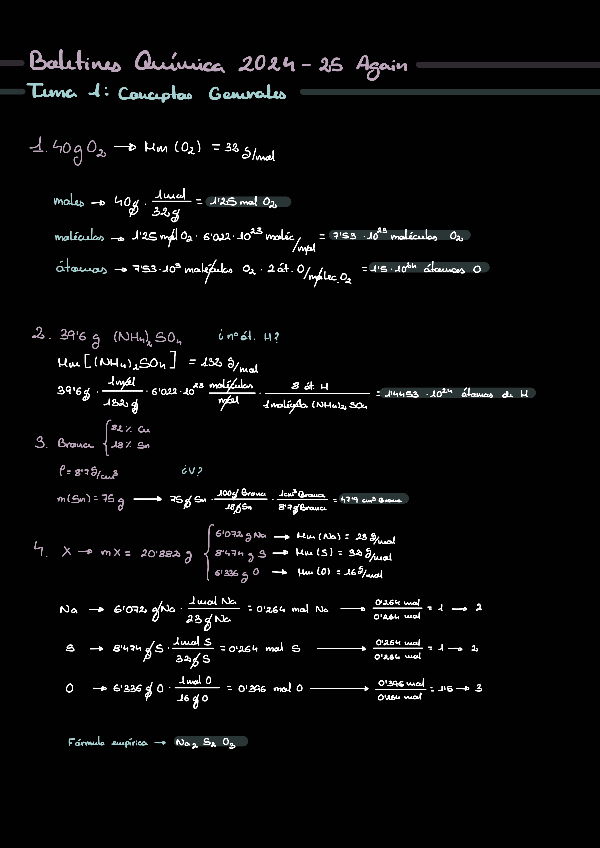 Boletines Química 2024-25 Again
Tema 1: Conceptos Generales
1. 40g O₂ → Mm (O₂) = 32 g/mol
moles → 40g · 1mol/32g = 1'25 mol O₂
moléculas → 1'25 mol O₂ · 6'022·10²³ moléc/mol = 7'53·10²³ moléculas O₂
átomos → 7'53·10³ moléculas O₂ · 2 át. O/moléc. O₂ = 1'5·10²⁴ átomos O
2. 39'6 g (NH₄)₂SO₄ ¿nº át. H?
Mm[(NH₄)₂SO₄] = 132 g/mol
39'6g · 1mol/132g · 6'022·10²³ moléculas/mol · 8 át. H/1 molécula (NH₄)₂SO₄ = 1'4453·10²⁴ átomos de H
3. Bronce { 82% Cu
18% Sn
ρ = 8'7 g/cm³ ¿V?
m(Sn) = 75 g → 75g Sn · 100g Bronce/18g Sn · 1cm³ Bronce/8'7g Bronce = 47'9 cm³ Bronce
4. X → mX = 20'882 g { 6'072 g Na → Mm (Na) = 23 g/mol
8'474 g S → Mm (S) = 32 g/mol
6'336 g O → Mm (O) = 16 g/mol
Na → 6'072 g Na · 1mol Na/23 g Na = 0'264 mol Na → 0'264 mol/0'264 mol = 1 → 2
S → 8'474 g S · 1mol S/32g S = 0'264 mol S → 0'264 mol/0'264 mol = 1 → 2
O → 6'336 g O · 1mol O/16 g O = 0'396 mol O → 0'396 mol/0'264 mol = 1'5 → 3
Fórmula empírica → Na₂ S₂ O₃